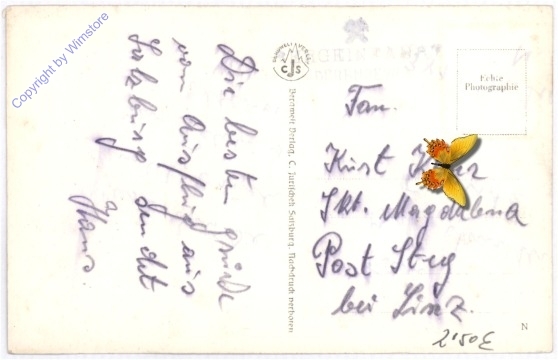 Die besten Grüße
vom Ausflug aus
Salzburg sendet
Hans.
CJS
Bergwelt Verlag, C. Jurischek Salzburg. Nachdruck verboten
Echte
Photographie
Fam.
Kurt
Skt. Magdalena
Post Steg
bei Linz.
N
2'50€
Copyright by Wimstore